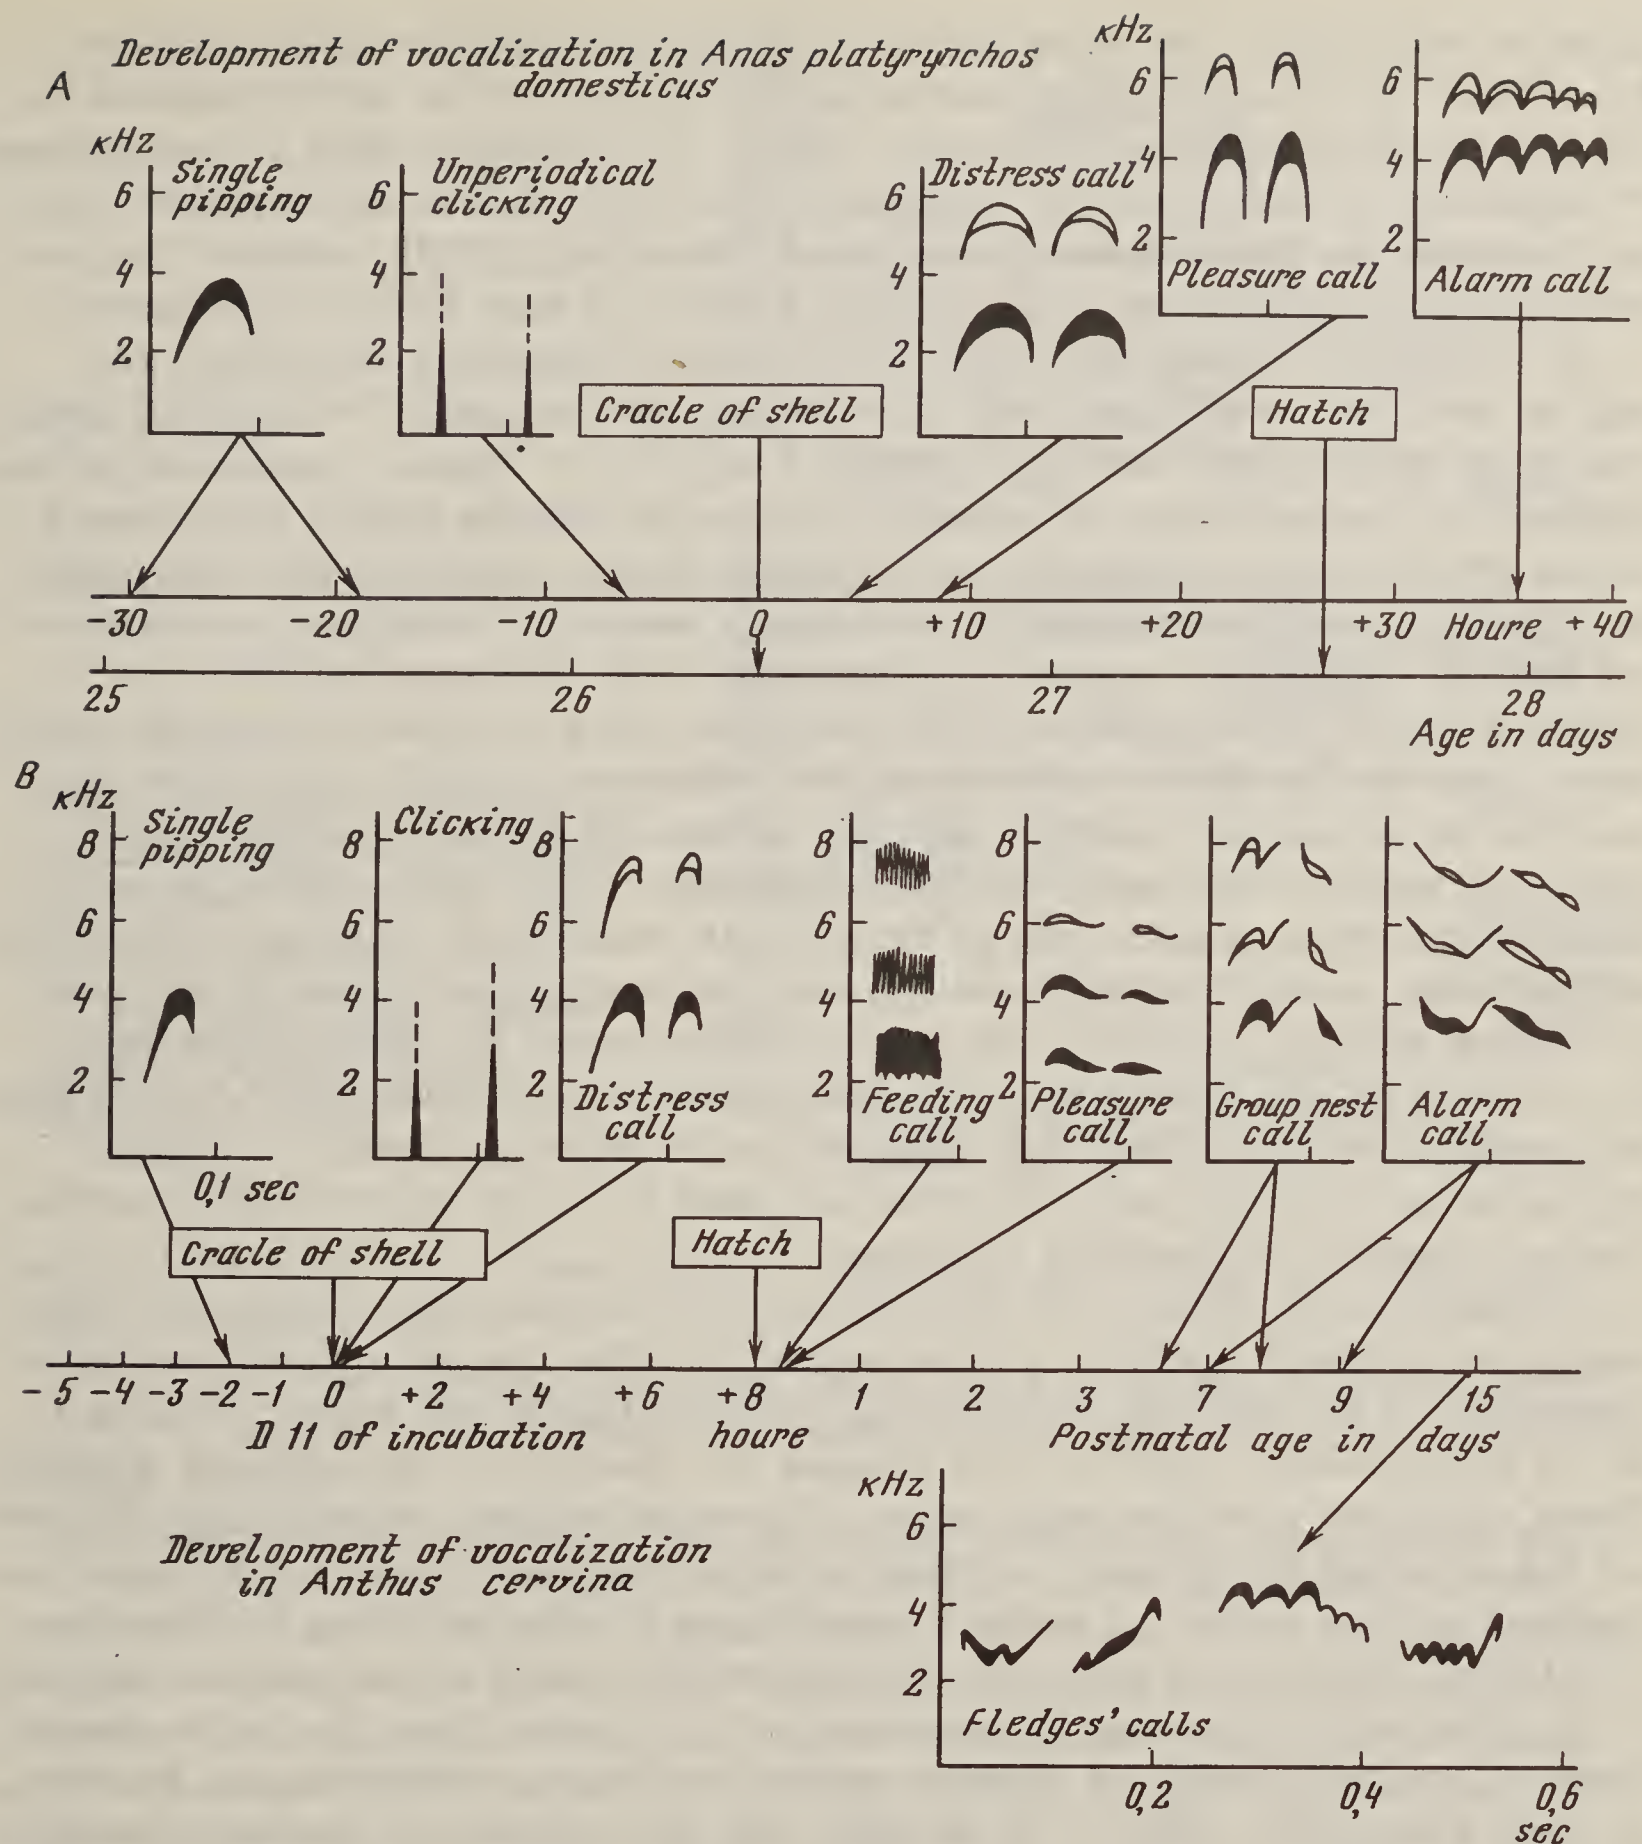 A
Development of vocalization in Anas platyrynchos
domesticus
кHz
6
4
2
Single
pipping
6
4
2
Unperiodical
clicking
Cracle of shell
6
4
2
Distress call
кHz
6
4
2
Pleasure call
6
4
2
Alarm call
Hatch
-30 -20 -10 0 +10 +20 +30 Houre +40
25 26 27 28
Age in days
B
кHz
8
6
4
2
Single
pipping
0,1 sec
8
6
4
2
Clicking
8
6
4
2
Distress
call
8
6
4
2
Feeding
call
8
6
4
2
Pleasure
call
Group nest
call
Alarm
call
Cracle of shell
Hatch
-5 -4 -3 -2 -1 0 +2 +4 +6 +8 1 2 3 7 9 15
D 11 of incubation houre Postnatal age in days
Development of vocalization
in Anthus cervina
кHz
6
4
2
Fledges' calls
0,2 0,4 0,6
sec